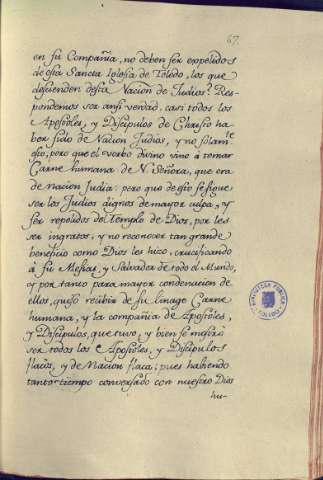 67.
en su Compañia, no deben ser expelidos
de esta Sancta Iglesia de Toledo, los que
descienden desta Nacion de Judios? Res-
pondemos ser ansi verdad, casi todos los
Apostoles, y Discipulos de Christo ha-
ber sido de Nacion Judios, y no solam.te
esto, pero que el verbo divino vino à tomar
Carne humana de N. Señora, que era
de nacion Judia: pero que de esto se sigue
ser los Judios dignos de mayor culpa, y
ser repelidos del templo de Dios, por les
ser ingratos, y no reconocer tan grande
beneficio como Dios les hizo, crucificando
à su Mesias, y Salvador de todo el Mundo,
y por tanto para mayor condenacion de
ellos, quiso recibir de su linage Carne
humana, y la compañia de Apostoles,
y Discipulos, que tuvo, y bien se mostrò
ser todos los Apostoles, y Discipulos
flacos, y de Nacion flaca; pues habiendo
tanto tiempo conversado con nuestro Dios
hu-
BIBLIOTECA PUBLICA
TOLEDO